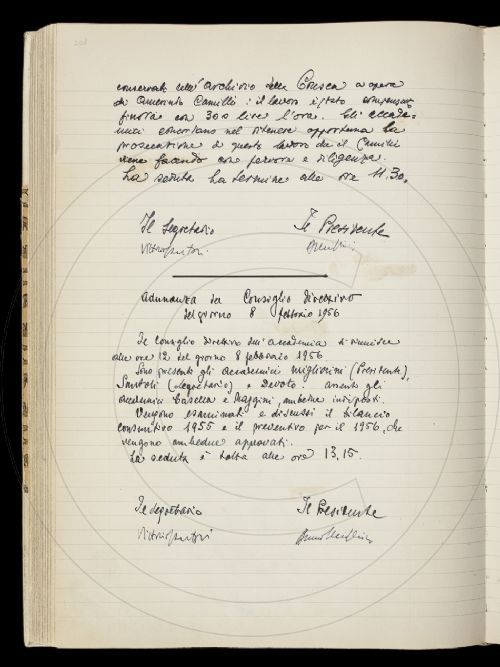 208
conservati nell'Archivio della Crusca a opera
di Amerindo Camilli: il lavoro è stato compensato
finora con 300 lire l'ora. Gli accade-
mici concordano nel ritenere opportuna la
prosecuzione di questo lavoro che il Camilli
viene facendo con fervore e diligenza.
La seduta ha termine alle ore 11.30.
Il Segretario Il Presidente
Adunanza del Consiglio direttivo
del giorno 8 febbraio 1956
Il consiglio direttivo dell'accademia si riunisce
alle ore 12 del giorno 8 febbraio 1956
Sono presenti gli accademici Migliorini (Presidente),
Santoli (Segretario) e Devoto. Assenti gli
accademici Casella e Maggini, ambedue indisposti.
Vengono esaminati e discussi il bilancio
consuntivo 1955 e il preventivo per il 1956, che
vengono ambedue approvati.
La seduta è tolta alle ore 13,15.
Il Segretario Il Presidente